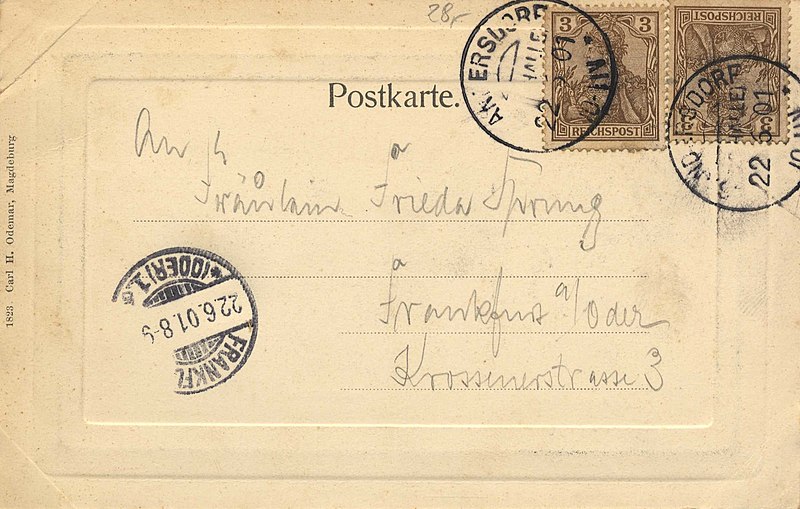 28,-
3 3
REICHSPOST
REICHSPOST
3 3
ANDERSDORF
22 6 01
22 6 01
Postkarte.
An
Fräulein Frieda Sprung
Frankfurt a/Oder
Krossenerstrasse 3
FRANKF
(ODER) 1.
22.6.01.8-9
1823 Carl H. Odemar, Magdeburg